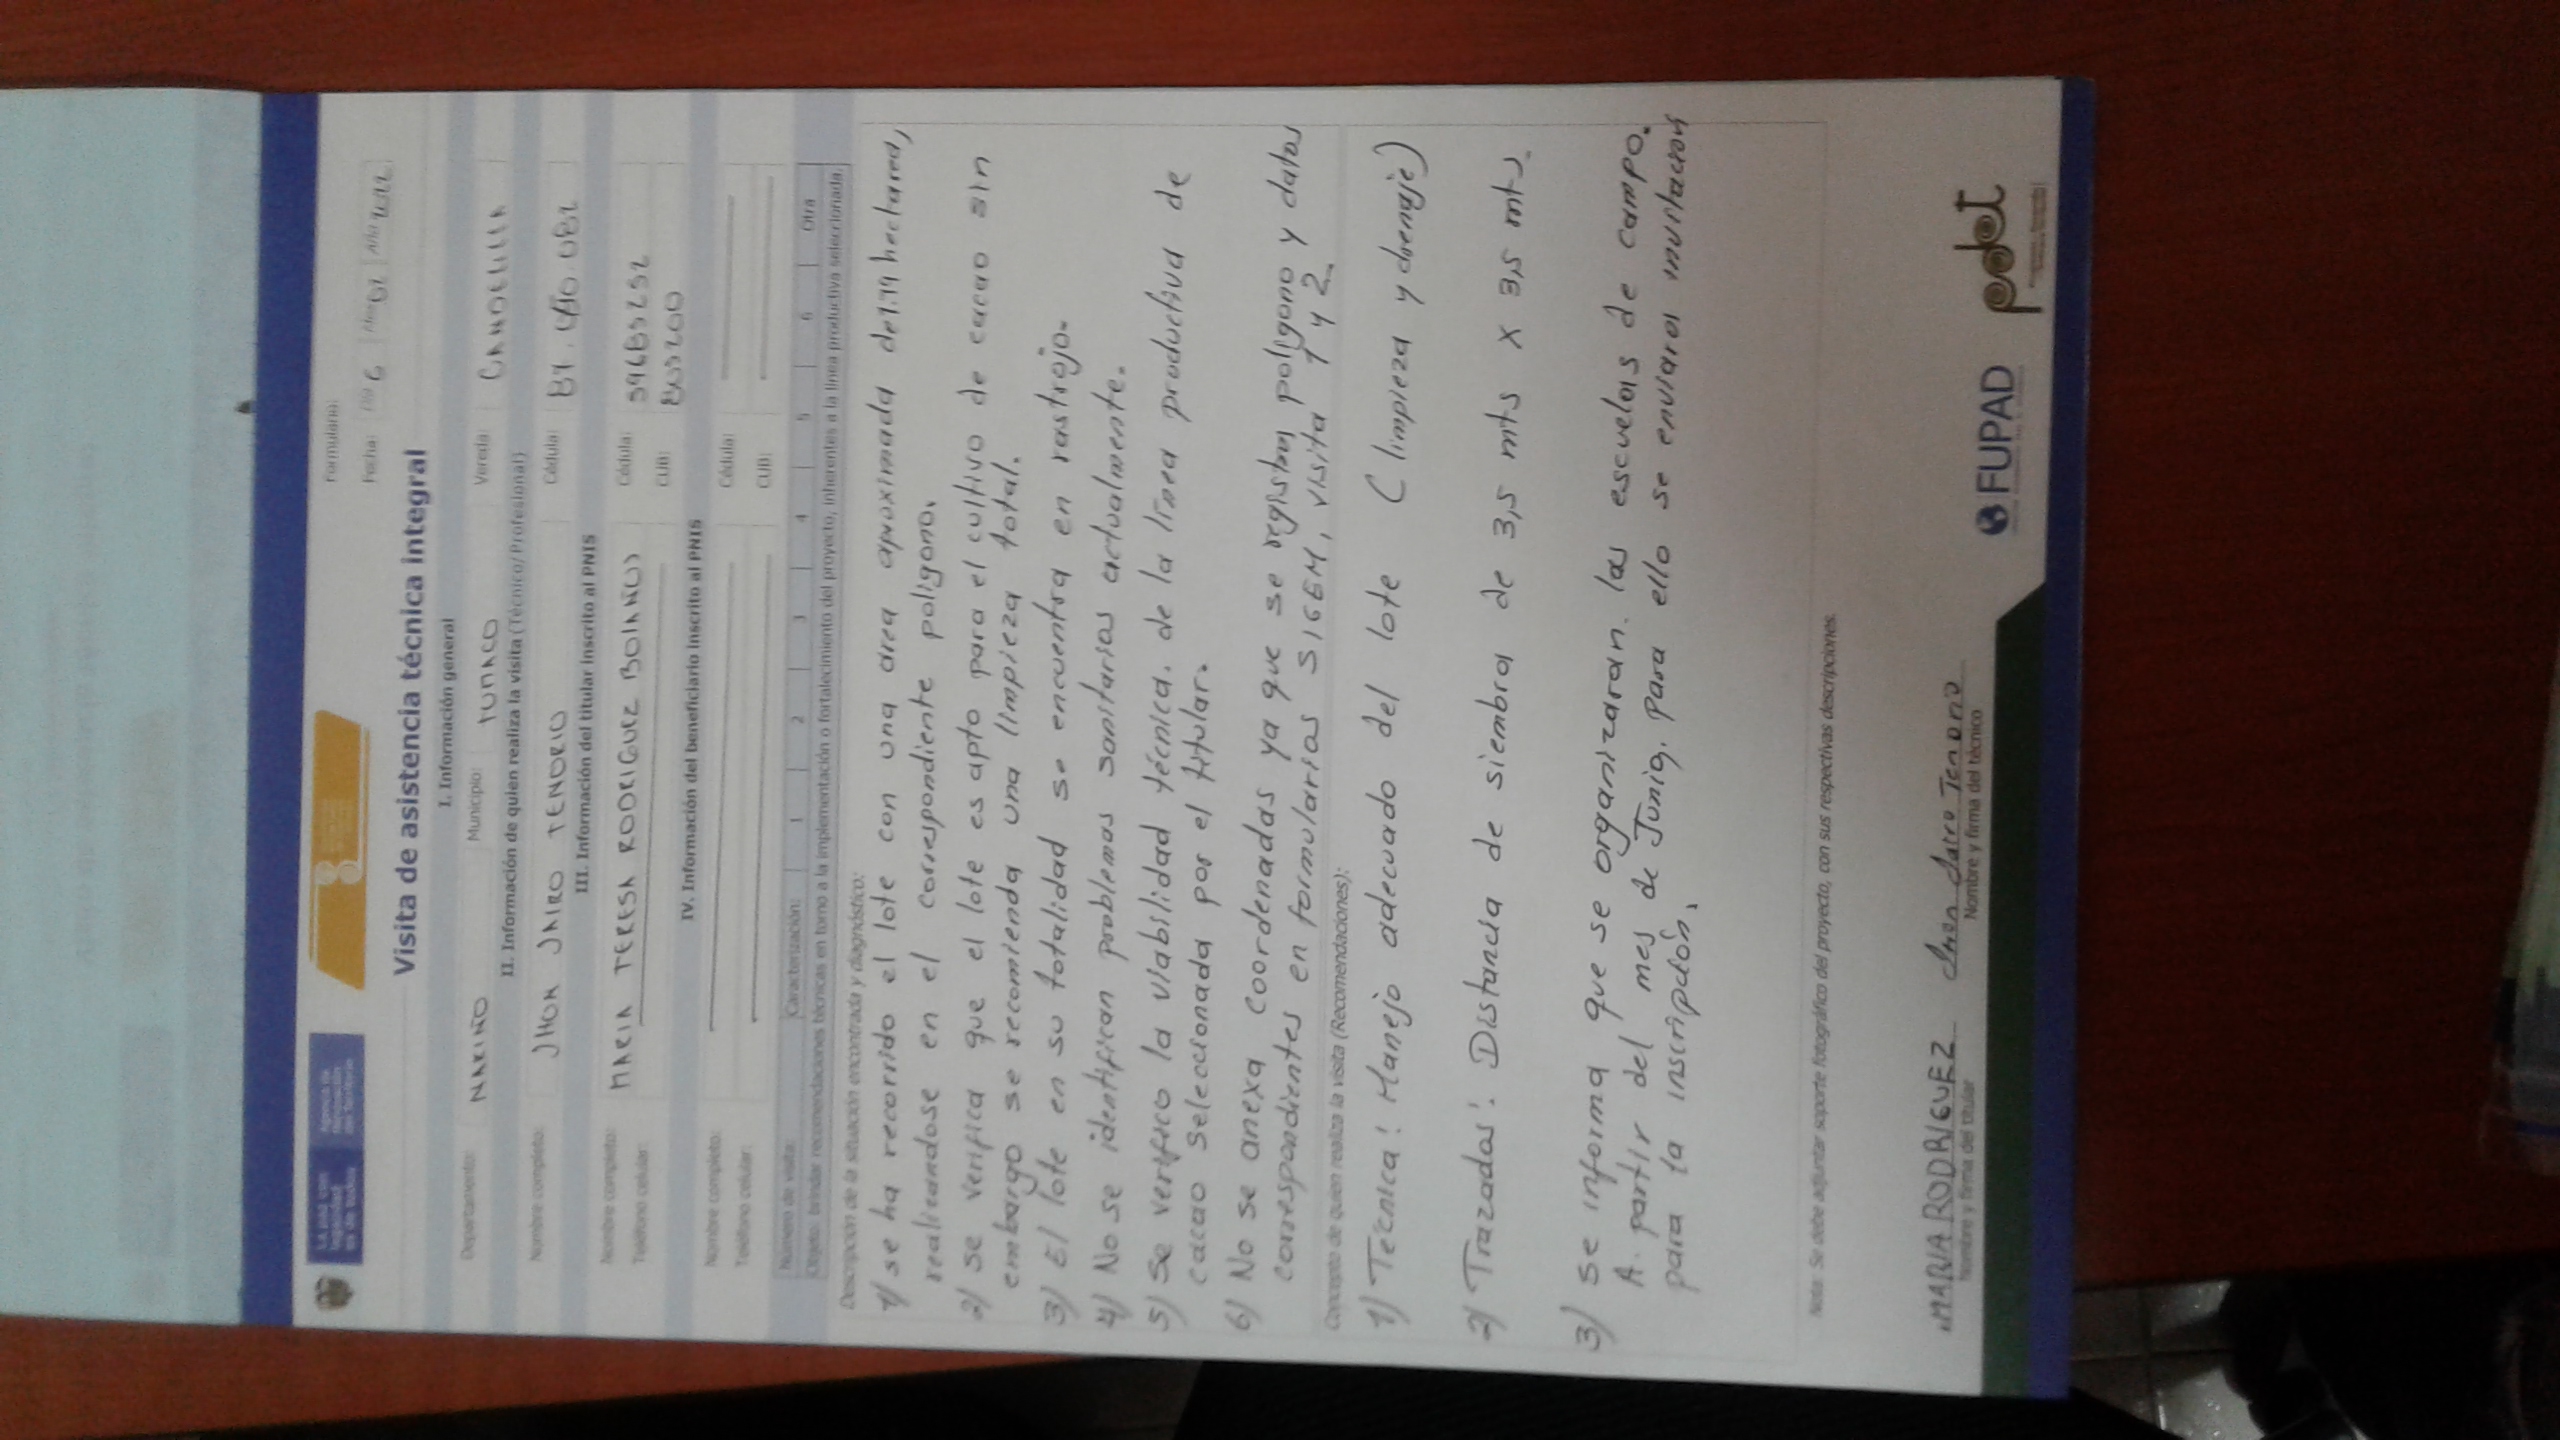 La paz con legalidad es de todos
Agencia de Renovación del Territorio
Formulario:
Fecha: Día 6 Mes 02 Año 2022
Visita de asistencia técnica integral
I. Información general
Departamento: NARIÑO Municipio: TUMACO Vereda: CANDELILLA
II. Información de quien realiza la visita (Técnico/Profesional)
Nombre completo: JHON JAIRO TENORIO Cédula:
III. Información del titular inscrito al PNIS
Nombre completo: MARIA TERESA RODRIGUEZ BOLAÑOS Cédula: 59685252
Teléfono celular: CUB: 805200
IV. Información del beneficiario inscrito al PNIS
Nombre completo: Cédula:
Teléfono celular: CUB:
Número de visita: Caracterización: 1 2 3 4 5 6 Otra
Objeto: brindar recomendaciones técnicas en torno a la implementación o fortalecimiento del proyecto, inherentes a la línea productiva seleccionada.
Descripción de la situación encontrada y diagnóstico:
1) se ha recorrido el lote con una area aproximada de 1.79 hectared,
realizandose en el correspondiente poligono.
2) se verifica que el lote es apto para el cultivo de cacao sin
embargo se recomienda una limpieza total.
3) El lote en su totalidad se encuentra en rastrojo.
4) No se identifican problemas sanitarios actualmente.
5) Se verifico la viabilidad técnica. de la línea productiva de
cacao seleccionada por el titular.
6) No se anexa coordenadas ya que se registran poligono y datos
correspondientes en formularios SIGEM, visita 1 y 2
Concepto de quien realiza la visita (Recomendaciones):
1) Tecnica: Manejo adecuado del lote (limpieza y drenaje)
2) Trazados: Distancia de siembra de 3,5 mts X 3,5 mts.
3) Se informa que se organizaran. las escuelas de campo.
A. partir del mes de Junio, para ello se enviaran invitacion
para la inscripción.
Nota: Se debe adjuntar soporte fotográfico del proyecto, con sus respectivas descripciones.
MARIA RODRIGUEZ Jhon Jairo Tenorio
Nombre y firma del titular Nombre y firma del técnico
FUPAD
pdet